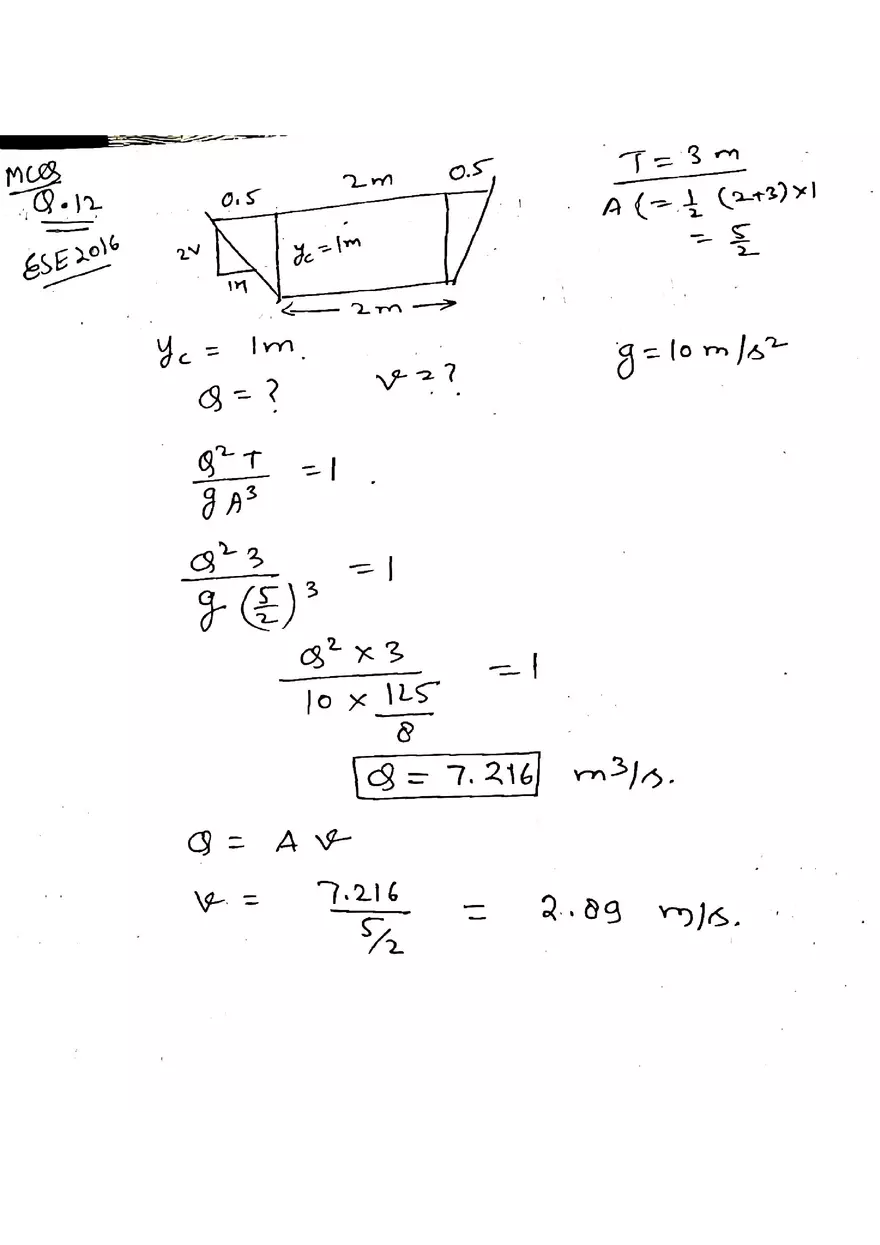 MCQs
Q.12
ESE 2016
0.5 2m 0.5
2V
1H
yc = 1m
2m
T = 3 m
A = 1/2 (2+3)×1
= 5/2
yc = 1m.
Q = ? v = ?
g = 10 m/s²
Q² T / g A³ = 1
Q² 3 / g (5/2)³ = 1
Q² × 3 / 10 × 125/8 = 1
Q = 7.216 m³/s.
Q = A v
v = 7.216 / 5/2 = 2.89 m/s.